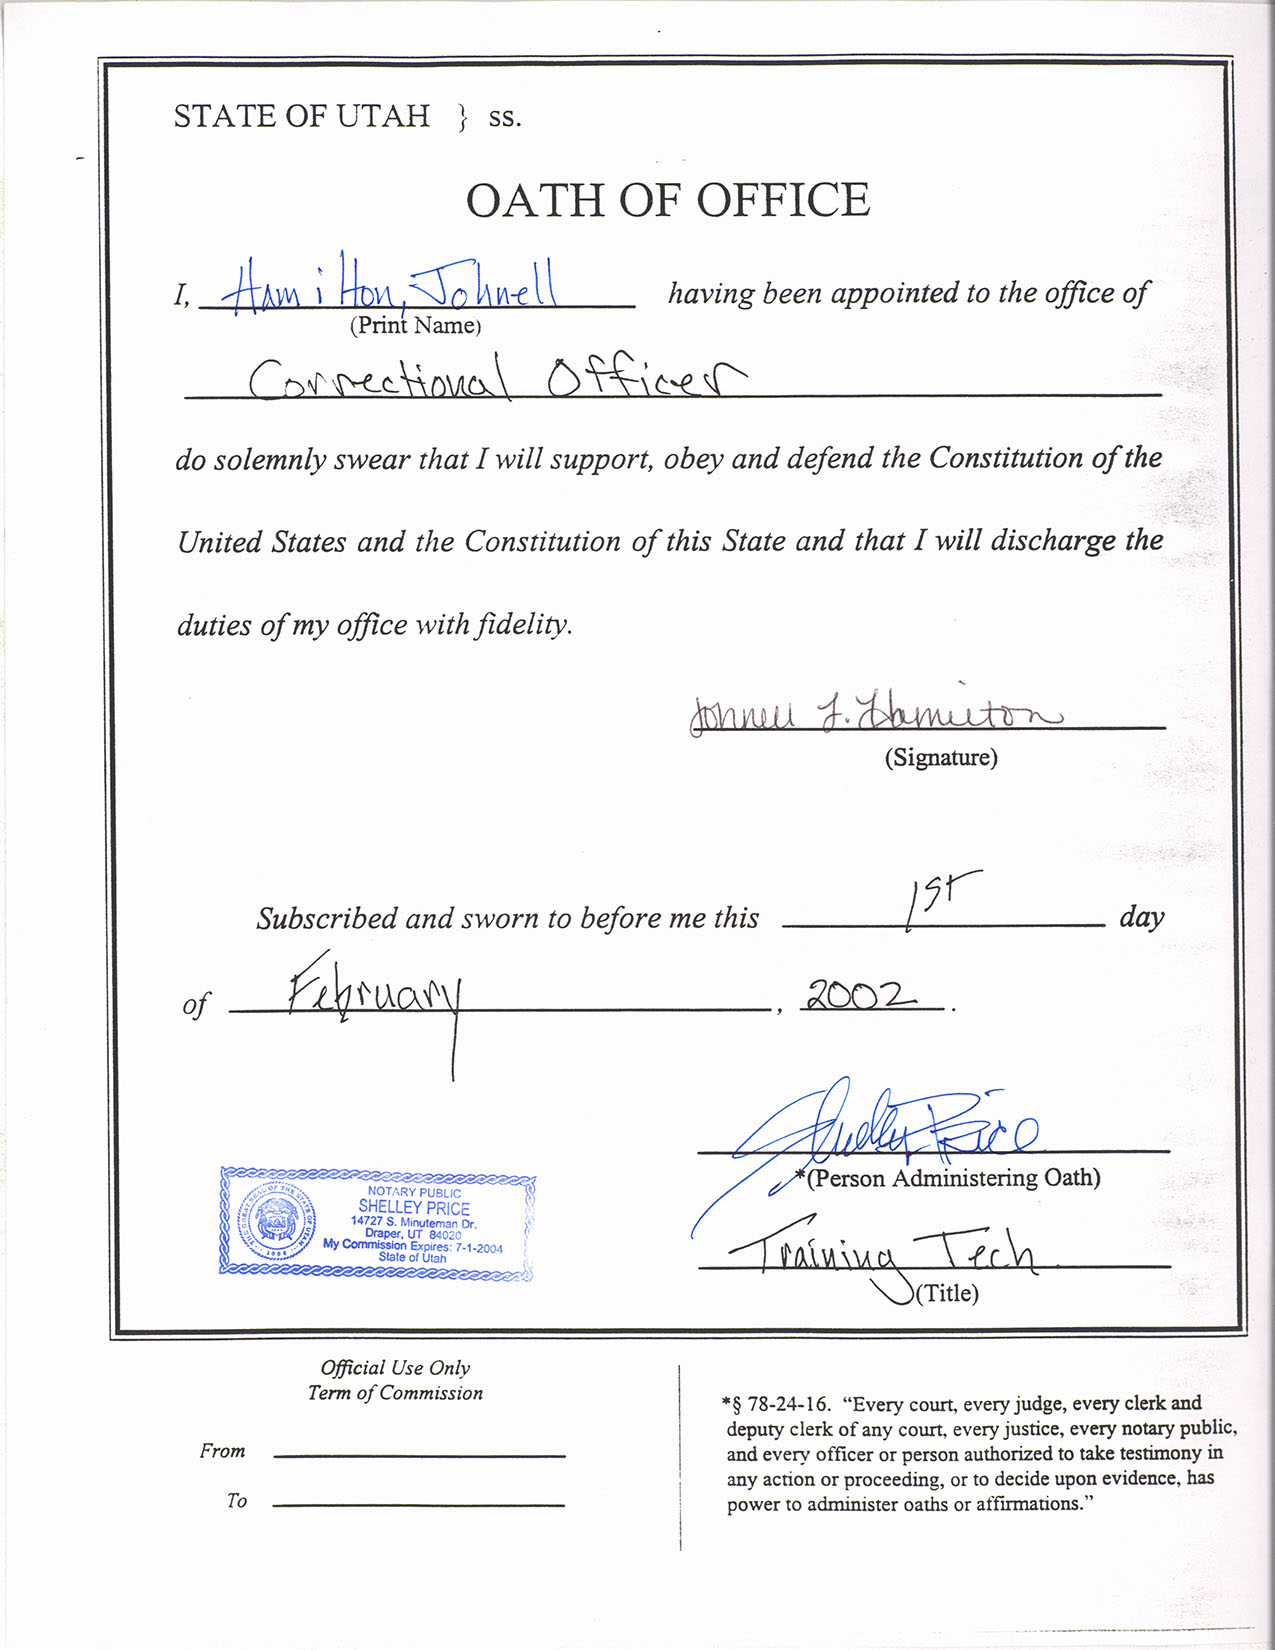 STATE OF UTAH } ss.
OATH OF OFFICE
I, Hamilton, Johnell having been appointed to the office of
(Print Name)
Correctional Officer
do solemnly swear that I will support, obey and defend the Constitution of the
United States and the Constitution of this State and that I will discharge the
duties of my office with fidelity.
Johnell F. Hamilton
(Signature)
Subscribed and sworn to before me this 1st day
of February, 2002.
Shelley Price
*(Person Administering Oath)
NOTARY PUBLIC
SHELLEY PRICE
14727 S. Minuteman Dr.
Draper, UT 84020
My Commission Expires: 7-1-2004
State of Utah
THE GREAT SEAL OF THE STATE OF UTAH
1896
Training Tech
(Title)
Official Use Only
Term of Commission
From
To
*§ 78-24-16. “Every court, every judge, every clerk and
deputy clerk of any court, every justice, every notary public,
and every officer or person authorized to take testimony in
any action or proceeding, or to decide upon evidence, has
power to administer oaths or affirmations.”